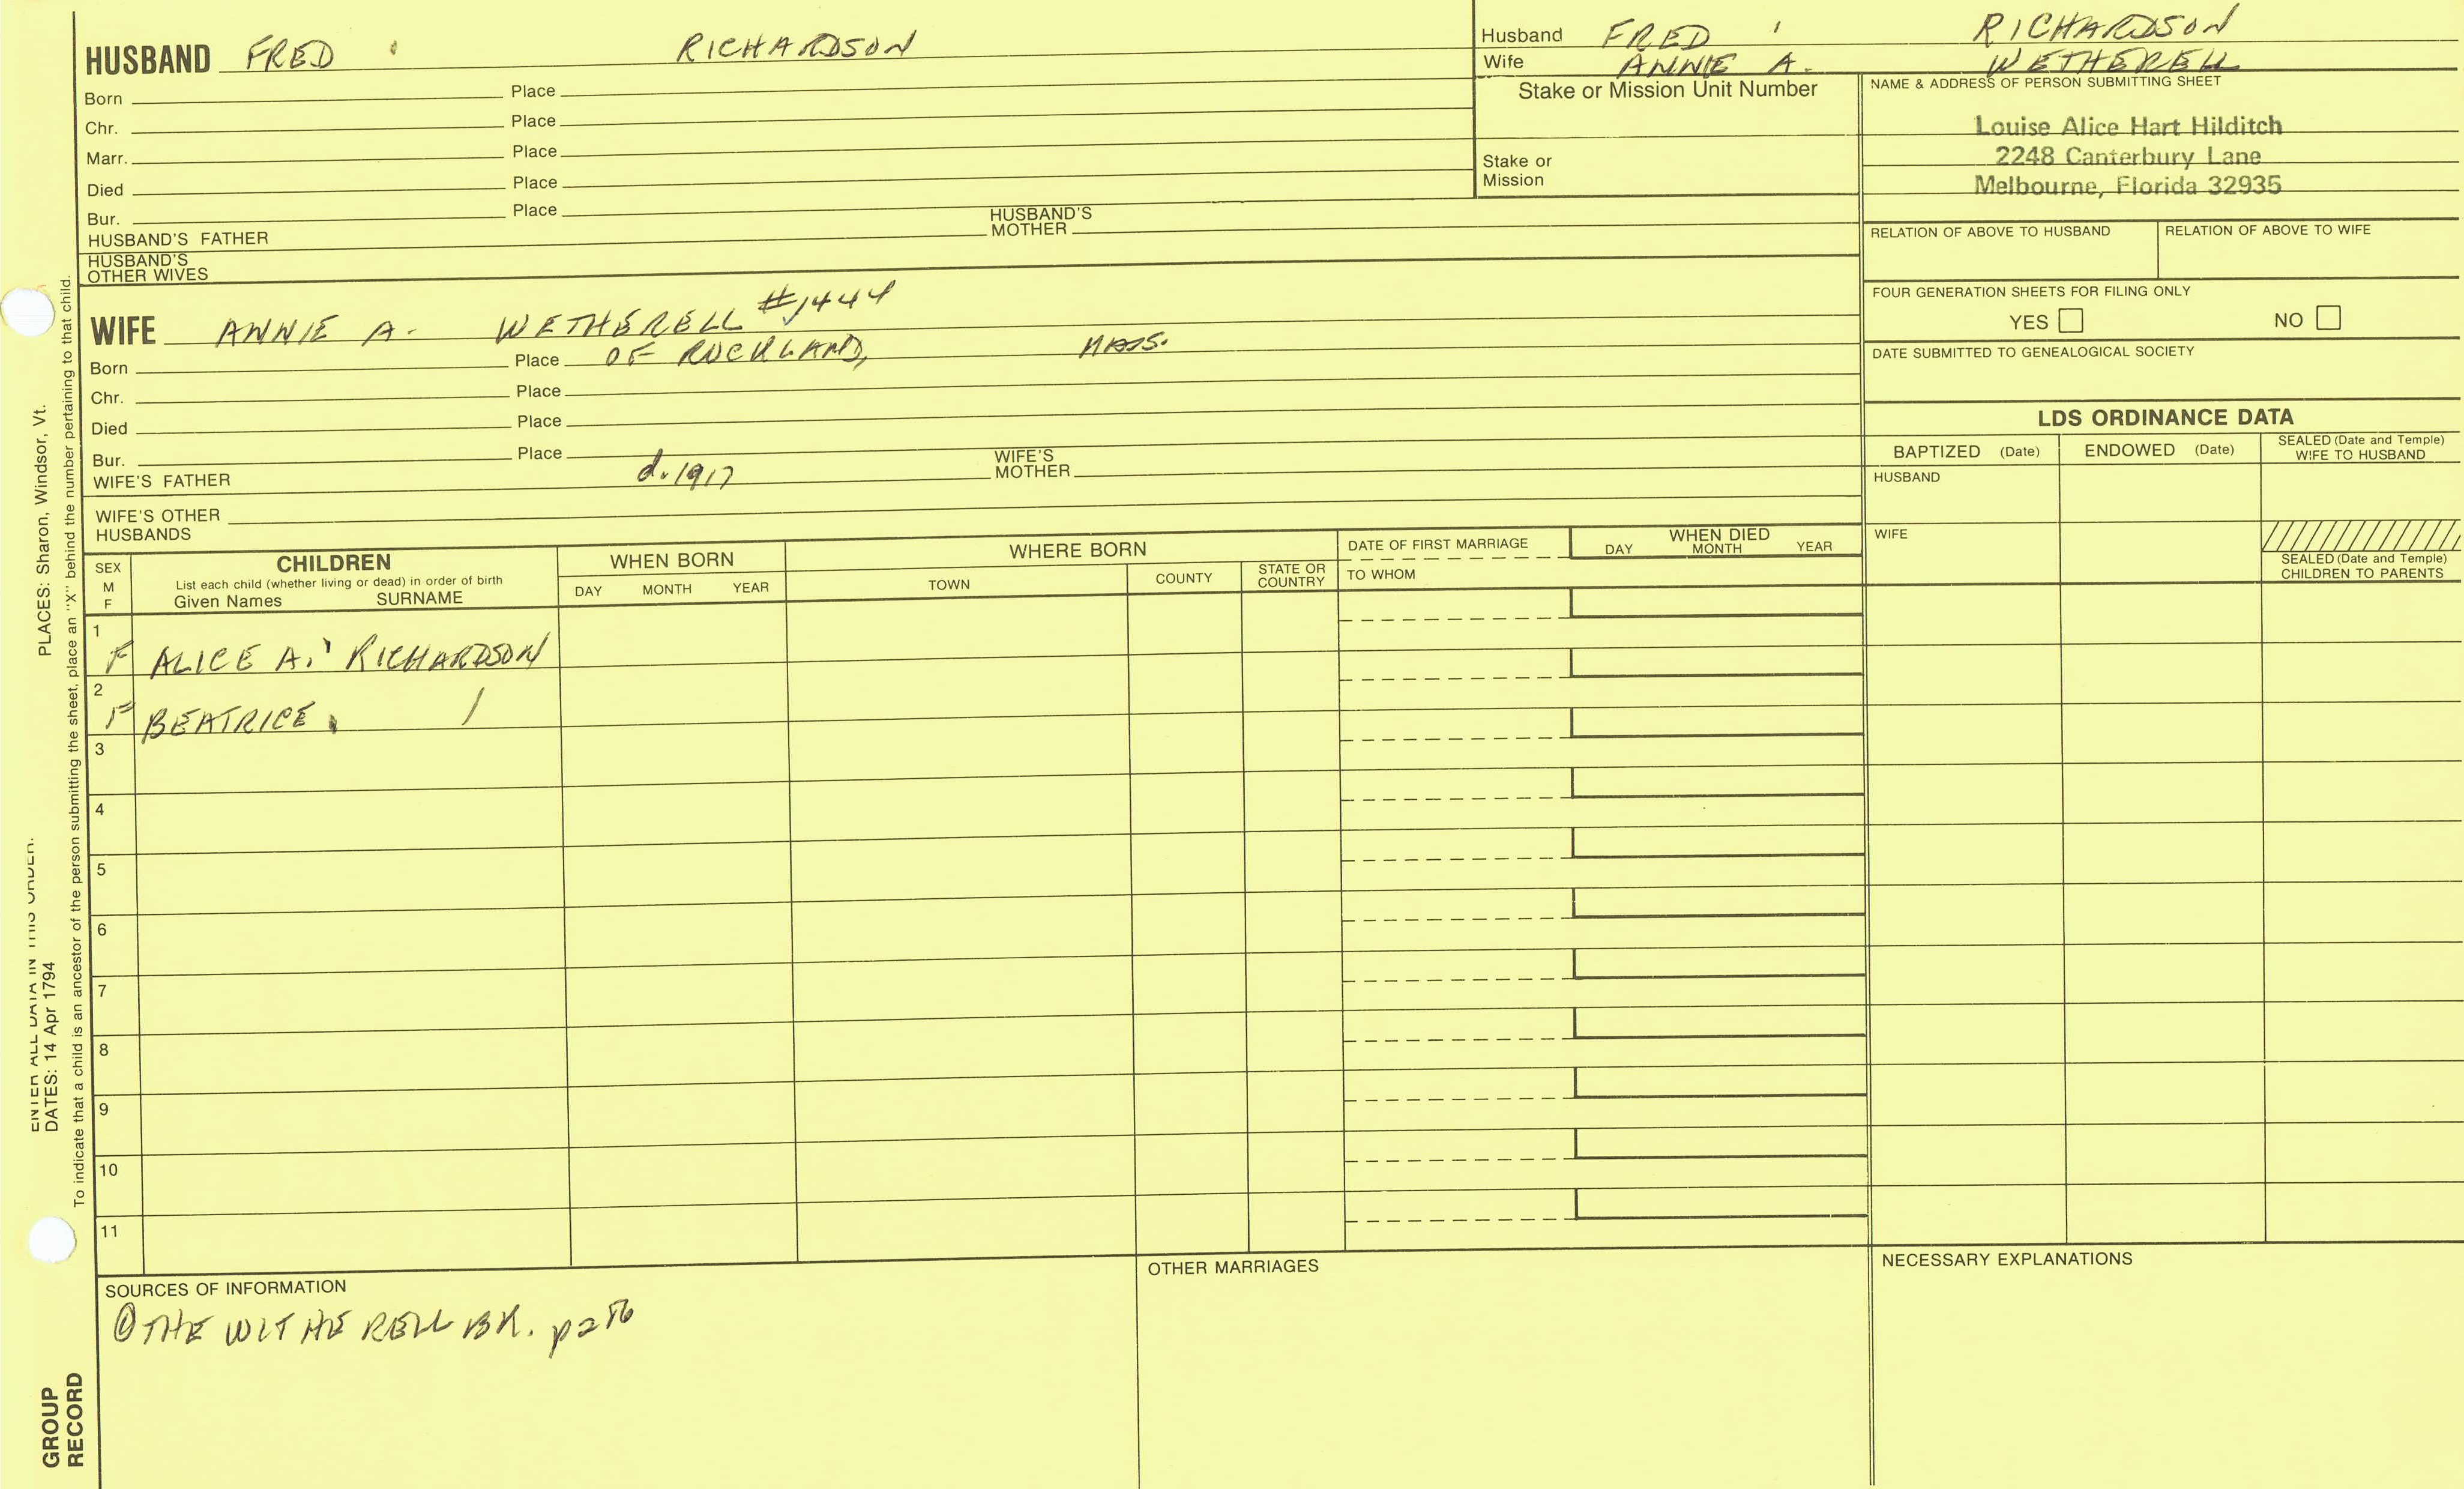 HUSBAND FRED RICHARDSON
Born Place
Chr. Place
Marr. Place
Died Place
Bur. Place
HUSBAND'S FATHER HUSBAND'S MOTHER
HUSBAND'S OTHER WIVES
WIFE ANNIE A. WETHERELL #1444
Born Place OF ROCKLAND, MASS.
Chr. Place
Died Place
Bur. Place
WIFE'S FATHER d. 1917 WIFE'S MOTHER
WIFE'S OTHER HUSBANDS
Husband FRED RICHARDSON
Wife ANNIE A. WETHERELL
Stake or Mission Unit Number
Stake or Mission
NAME & ADDRESS OF PERSON SUBMITTING SHEET
Louise Alice Hart Hilditch
2248 Canterbury Lane
Melbourne, Florida 32935
RELATION OF ABOVE TO HUSBAND RELATION OF ABOVE TO WIFE
FOUR GENERATION SHEETS FOR FILING ONLY
YES NO
DATE SUBMITTED TO GENEALOGICAL SOCIETY
LDS ORDINANCE DATA
BAPTIZED (Date) ENDOWED (Date) SEALED (Date and Temple) WIFE TO HUSBAND
HUSBAND
WIFE
SEALED (Date and Temple) CHILDREN TO PARENTS
SEX M F
CHILDREN
List each child (whether living or dead) in order of birth
Given Names SURNAME
WHEN BORN
DAY MONTH YEAR
WHERE BORN
TOWN COUNTY STATE OR COUNTRY
DATE OF FIRST MARRIAGE
TO WHOM
WHEN DIED
DAY MONTH YEAR
1
F ALICE A. RICHARDSON
2
F BEATRICE /
3
4
5
6
7
8
9
10
11
SOURCES OF INFORMATION
① THE WITHERELL BK.
OTHER MARRIAGES
NECESSARY EXPLANATIONS
ENTER ALL DATA IN THIS ORDER:
DATES: 14 Apr 1794 PLACES: Sharon, Windsor, Vt.
To indicate that a child is an ancestor of the person submitting the sheet, place an "X" behind the number pertaining to that child.
GROUP
RECORD